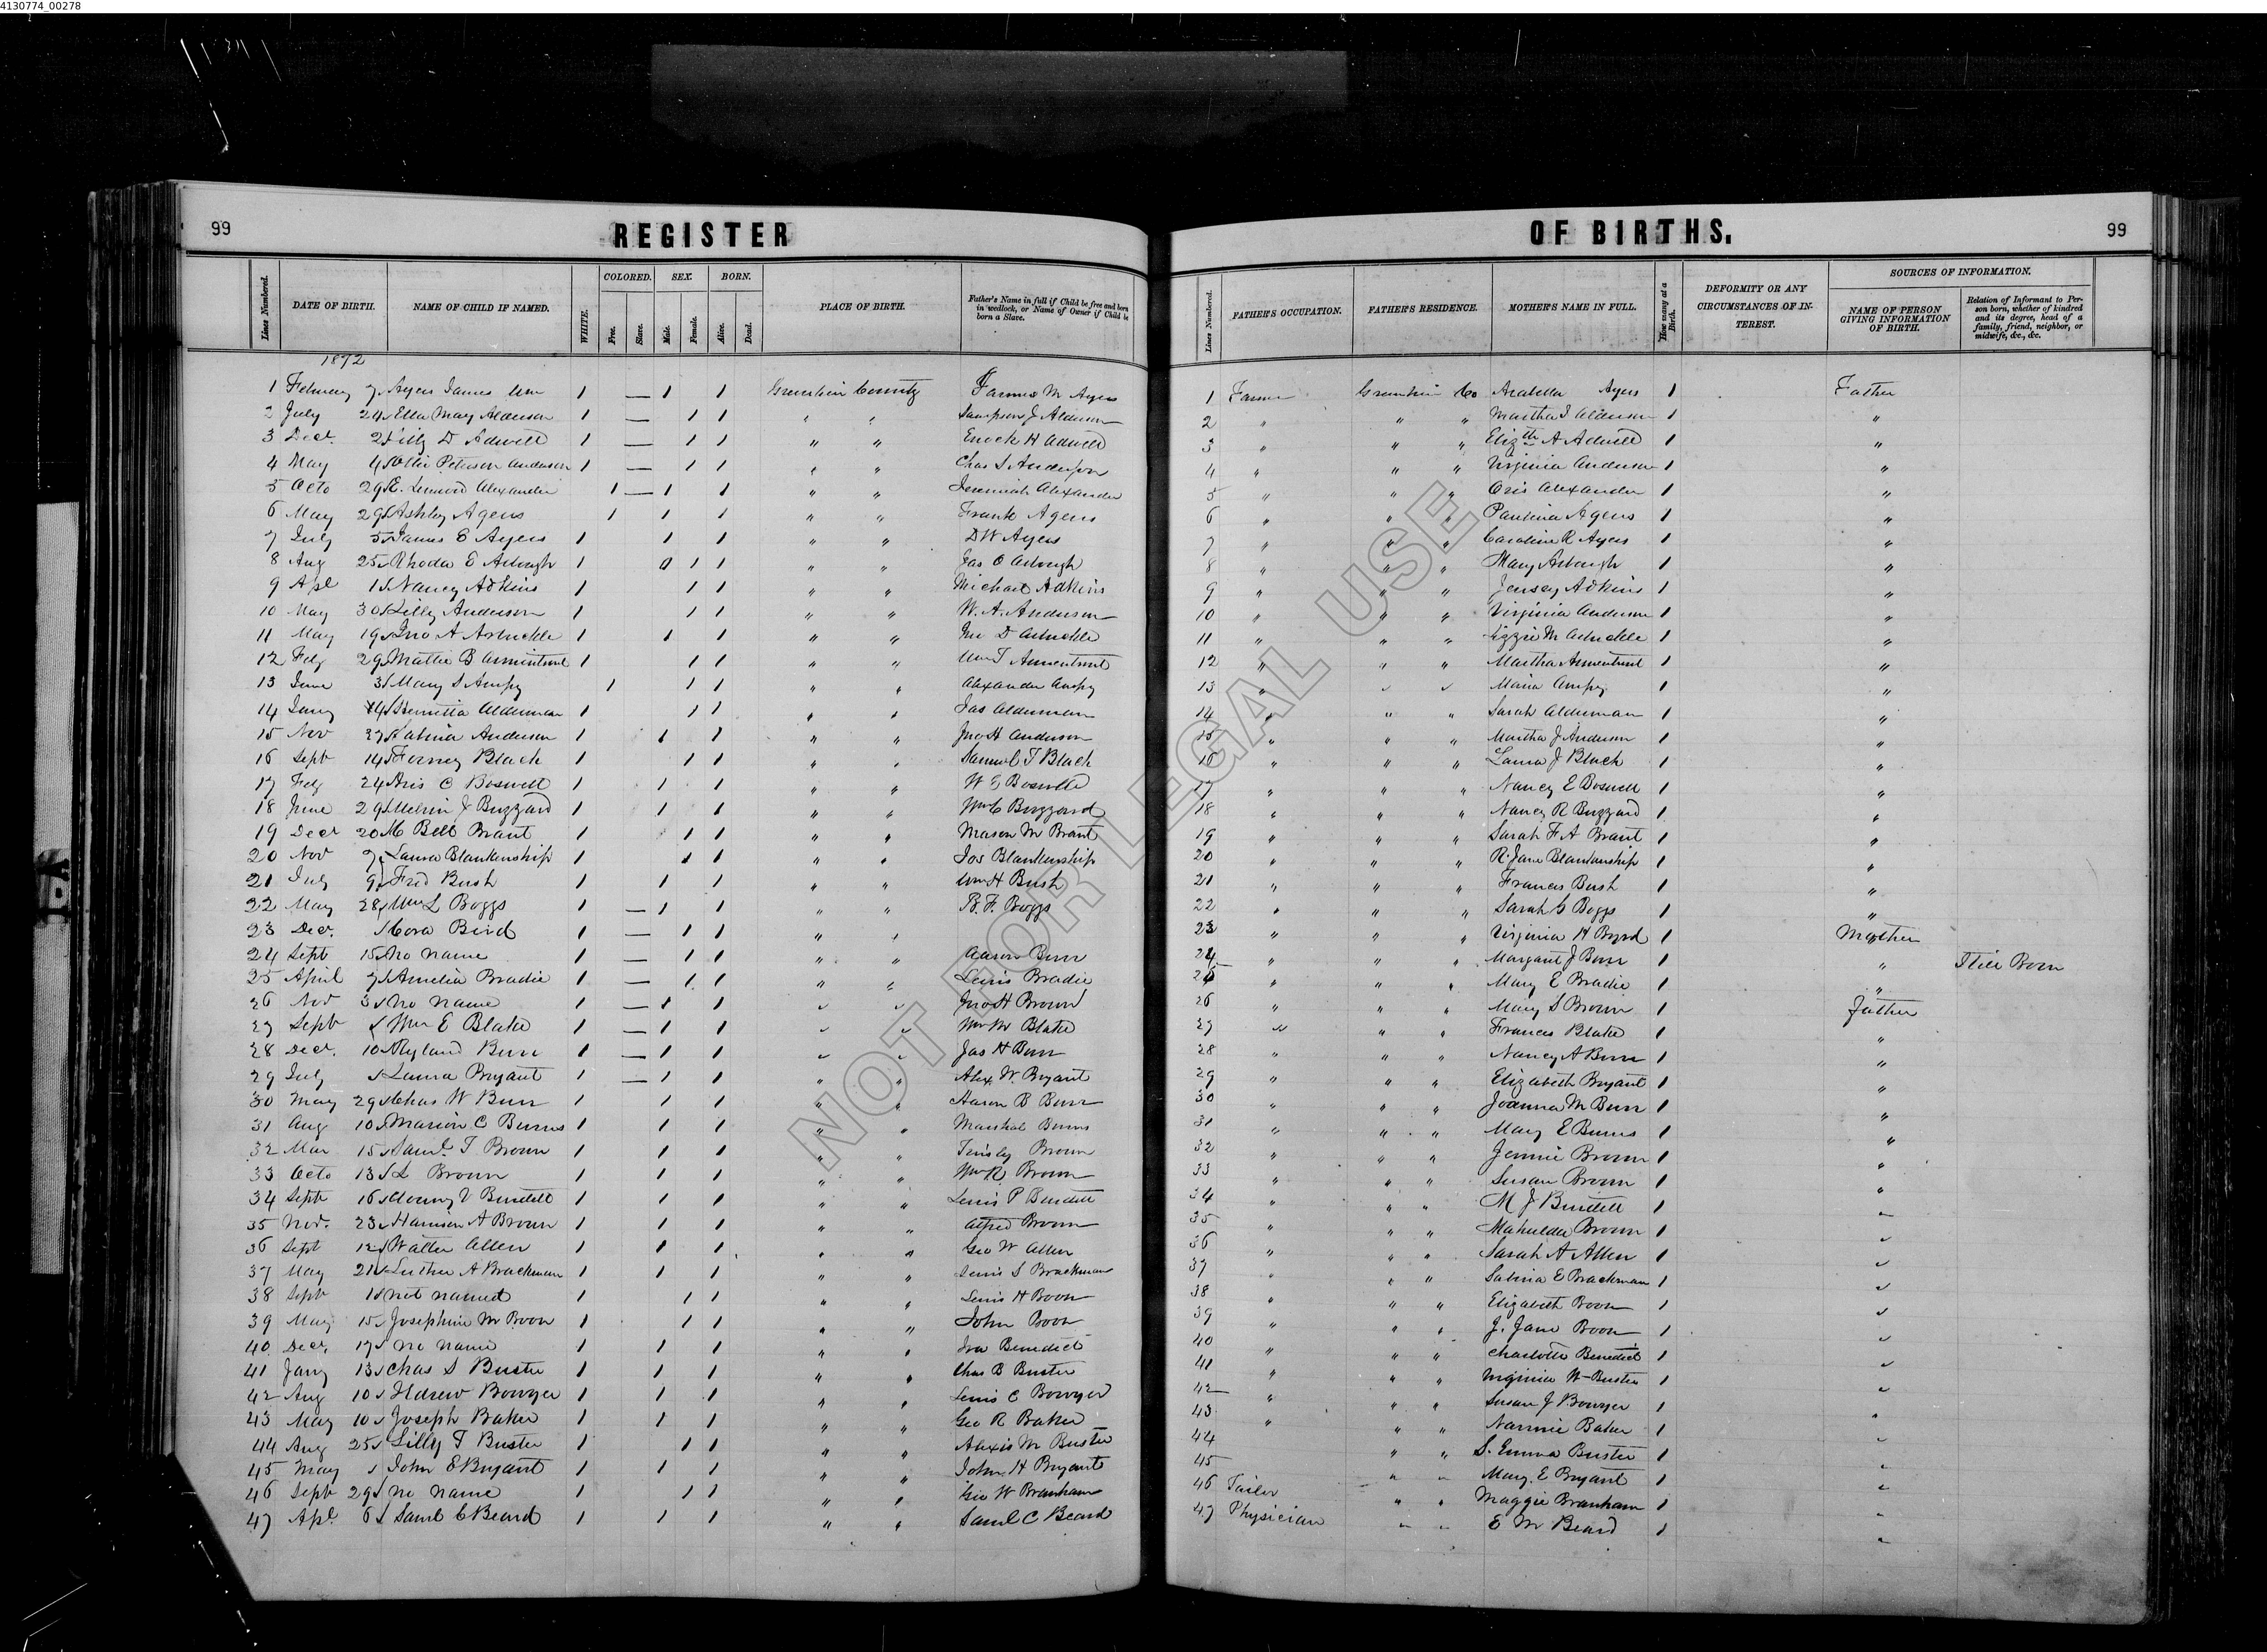 4130774_00278
99
REGISTER
Lines Numbered.
DATE OF BIRTH.
NAME OF CHILD IF NAMED.
WHITE.
COLORED.
Free.
Slave.
SEX.
Male.
Female.
BORN.
Alive.
Dead.
PLACE OF BIRTH.
Father's Name in full if Child be free and born in wedlock, or Name of Owner if Child be born a Slave.
1872
1 February 7 Ayers James Wm 1 — 1 1 County James M Ayers
2 July 24 Ella May Alderson 1 — 1 1 " " Sampson J Alderson
3 Decr. 2 Lilly D Adwell 1 — 1 1 " " Enoch H Adwell
4 May 4 Ollie Peterson Anderson 1 — 1 1 " " Chas S Anderson
5 Octo 29 E. Alexander 1 — 1 1 " " Jeremiah Alexander
6 May 29 Ashley Agens 1 1 1 " " Frank Agens
7 July 5 James E Ayers 1 1 1 " " D W Ayers
8 Aug 25 Rhoda E Arbough 1 1 1 " " Jas O Arbough
9 Apl 1 Nancy Adkins 1 1 1 " " Michael Adkins
10 May 30 Lilly Anderson 1 1 1 " " W. A. Anderson
11 May 19 Jno A Arbuckle 1 1 1 " " Jno D Arbuckle
12 Feby 29 Mattie B Armintrout 1 1 1 " " Wm T Armentrout
13 June 3 Mary S Ampy 1 1 1 " " Alexander Ampy
14 Jany 14 Henrietta Alderman 1 1 1 " " Jas Alderman
15 Nov 27 Anderson 1 1 1 " " Jno H Anderson
16 Sept 14 Black 1 1 1 " " Samuel T Black
17 Feby 24 Aris C Boswell 1 1 1 " " W E Boswell
18 June 29 Melvin J Buzzard 1 1 1 " " Wm C Buzzard
19 Decr 20 M Bell Brant 1 1 1 " " Mason M Brant
20 Nov 7 Laura Blankenship 1 1 1 " " Jos Blankenship
21 July 9 Fred Bush 1 1 1 " " Wm H Bush
22 May 28 Wm L Boggs 1 — 1 1 " " B. F. Boggs
23 Decr. Cora Bird 1 — 1 1 " "
24 Sept 15 No name 1 — 1 1 " " Aaron Burr
25 April 7 Amelia Bradie 1 — 1 1 " " Lewis Bradie
26 Nov 3 No name 1 — 1 1 " " Jno H Brown
27 Sept Wm E Blake 1 — 1 1 " " Wm M Blake
28 Decr. 10 Ryland Burr 1 — 1 1 " " Jas H Burr
29 July Laura Bryant 1 — 1 1 " " Alex. W. Bryant
30 May 29 Chas W Burr 1 1 1 " " Aaron B Burr
31 Aug 10 Marion C Burns 1 1 1 " " Marshal Burns
32 Mar 15 Saml. T Brown 1 1 1 " " Tinsley Brown
33 Octo 13 L Brown 1 1 1 " " Wm R Brown
34 Sept 16 V Burdett 1 1 1 " " Lewis P Burdett
35 Nov. 23 Harrison A Brown 1 1 1 " " Alfred Brown
36 Sept 12 Walter Allen 1 1 1 " " Geo W Allen
37 May 21 Luther A Brackman 1 1 1 " " Lewis S Brackman
38 Sept 1 not named 1 1 1 " " Lewis H Boon
39 May 15 Josephine M Boon 1 1 1 " " John Boon
40 Decr. 17 No name 1 1 1 " " Ira Benedict
41 Jany 13 Chas S Buster 1 1 1 " " Chas B Buster
42 Aug 10 Bowyer 1 1 1 " " Lewis C Bowyer
43 May 10 Joseph Baker 1 1 1 " " Geo R Baker
44 Aug 25 Lilly T Buster 1 1 1 " " Alexis M Buster
45 May John E Bryant 1 1 1 " " John H Bryant
46 Sept 29 No name 1 1 1 " " Geo W Branham
47 Apl. 6 Saml C Beard 1 1 1 " " Saml C Beard
OF BIRTHS.
99
Lines Numbered.
FATHER'S OCCUPATION.
FATHER'S RESIDENCE.
MOTHER'S NAME IN FULL.
How many at a Birth.
DEFORMITY OR ANY CIRCUMSTANCES OF INTEREST.
SOURCES OF INFORMATION.
NAME OF PERSON GIVING INFORMATION OF BIRTH.
Relation of Informant to Person born, whether of kindred and its degree, head of a family, friend, neighbor, or midwife, &c., &c.
1 Farmer Co Arabella Ayers 1 Father
2 " " " Martha J Alderson 1 "
3 " " " Elizth A Adwell 1 "
4 " " " Virginia Anderson 1 "
5 " " " Oris Alexander 1 "
6 " " " Paulina Agens 1 "
7 " " " Caroline R Ayers 1 "
8 " " " Mary Arbough 1 "
9 " " " Jersey Adkins 1 "
10 " " " Virginia Anderson 1 "
11 " " " Lizzie M Arbuckle 1 "
12 " " " Martha Armentrout 1 "
13 " " " Maria Ampy 1 "
14 " " " Sarah Alderman 1 "
15 " " " Martha J Anderson 1 "
16 " " " Laura J Black 1 "
17 " " " Nancy E Boswell 1 "
18 " " " Nancy R Buzzard 1 "
19 " " " Sarah F A Brant 1 "
20 " " " R. Jane Blankenship 1 "
21 " " " Frances Bush 1 "
22 " " " Sarah G Boggs 1 "
23 " " " Virginia H Byrd 1 Mother
24 " " " Margaret J Burr 1 " Still Born
25 " " " Mary E Bradie 1 "
26 " " " Mary S Brown 1 Father
27 " " " Frances Blake 1 "
28 " " " Nancy A Burr 1 "
29 " " " Elizabeth Bryant 1 "
30 " " " Joanna M Burr 1 "
31 " " " Mary E Burns 1 "
32 " " " Jennie Brown 1 "
33 " " " Susan Brown 1 "
34 " " " M J Burdett 1 "
35 " " " Mahulda Brown 1 "
36 " " " Sarah A Allen 1 "
37 " " " Sabina E Brackman 1 "
38 " " " Elizabeth Boon 1 "
39 " " " J. Jane Boon 1 "
40 " " " Charlotte Benedict 1 "
41 " " " Virginia W Buster 1 "
42 " " " Susan J Bowyer 1 "
43 " " " Nannie Baker 1 "
44 " " S. Emma Buster 1 "
45 " " Mary E Bryant 1 "
46 Tailor " " Maggie Branham 1 "
47 Physician " " E M Beard 1 "
NOT FOR LEGAL USE